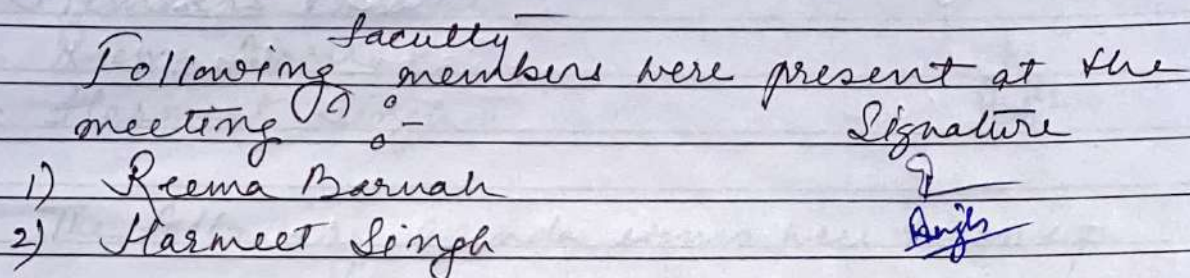 Following faculty members were present at the
meeting :- Signature
1) Reema Baruah
2) Harmeet Singh